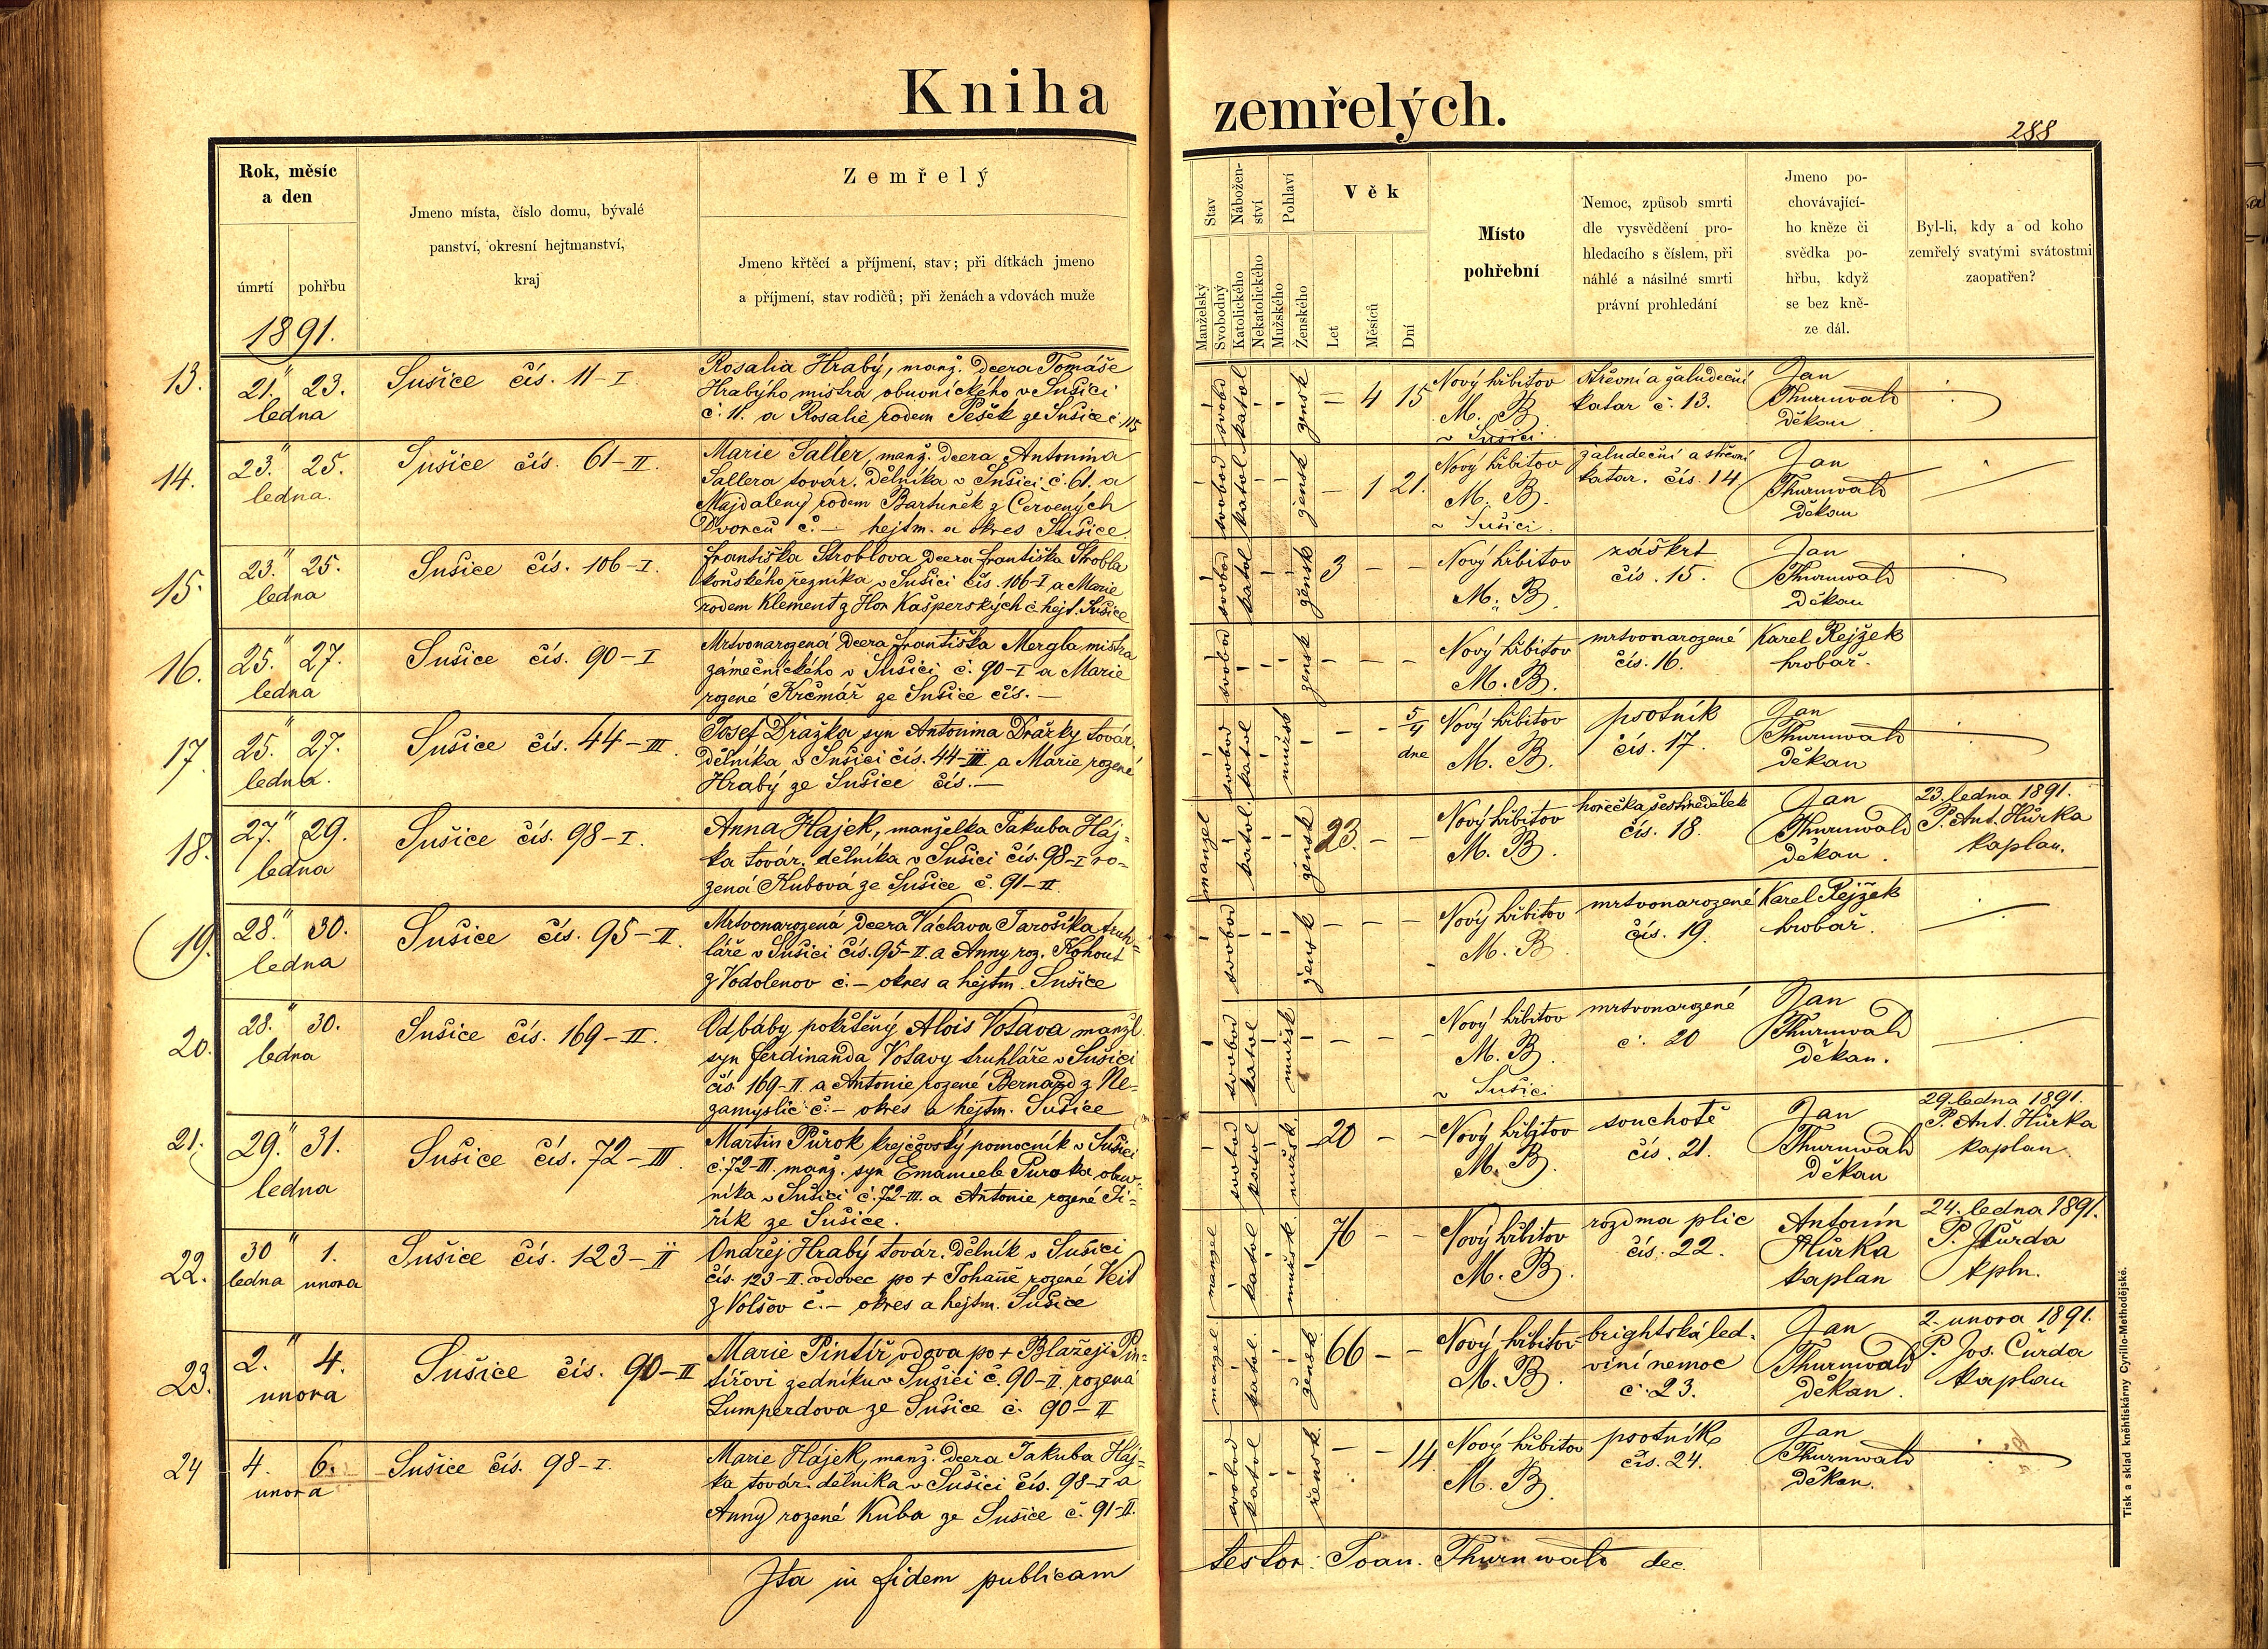 Kniha zemřelých.
288
Rok, měsíc
a den
úmrtí
pohřbu
1891.
Jmeno místa, číslo domu, bývalé
panství, okresní hejtmanství,
kraj
Zemřelý
Jmeno křtěcí a příjmení, stav; při dítkách jmeno
a příjmení, stav rodičů; při ženách a vdovách muže
Stav
Manželský
Svobodný
Nábožen-
ství
Katolického
Nekatolického
Pohlaví
Mužského
Ženského
Věk
Let
Měsíců
Dní
Místo
pohřební
Nemoc, způsob smrti
dle vysvědčení pro-
hledacího s číslem, při
náhlé a násilné smrti
právní prohledání
Jmeno po-
chovávající-
ho kněze či
svědka po-
hřbu, když
se bez kně-
ze dál.
Byl-li, kdy a od koho
zemřelý svatými svátostmi
zaopatřen?
13.
21." 23.
ledna
Sušice čís. 11-I.
Rosalia Hrabý, manž. dcera Tomáše
Hrabýho mistra obuvnického v Sušici
č. 11. a Rosalie rodem Pešek ze Sušice č. 115
svobod
katol
žensk
– 4 15
Nový hřbitov
M. B.
v Sušici
střevní a žaludeční
katar č. 13.
Jan
Thurnwald
děkan
14.
23." 25.
ledna.
Sušice čís. 61-II.
Marie Saller, manž. dcera Antonina
Sallera továr. dělníka v Sušici č. 61. a
Majdaleny rodem Bartuněk z Červených
Dvorců č. – hejtm. a okres Sušice.
svobod
katol
žensk
– 1 21.
Nový hřbitov
M. B.
v Sušici.
žaludeční a střevní
katar. čís. 14.
Jan
Thurnwald
děkan
15.
23." 25.
ledna
Sušice čís. 106-I.
Františka Stroblova dcera Františka Strobla
koňského řezníka v Sušici čís. 106-I a Marie
rodem Klement z Hor Kašperských č. hejt. Sušice
svobod
katol
žensk
3 – –
Nový hřbitov
M. B.
záškrt
čís. 15.
Jan
Thurnwald
děkan
16.
25." 27.
ledna
Sušice čís. 90-I
Mrtvonarozená dcera Františka Mergla mistra
zámečnického v Sušici č. 90-I a Marie
rozené Krčmář ze Sušice čís. –
svobod
žensk
– – –
Nový hřbitov
M. B.
mrtvonarozené
čís. 16.
Karel Rejžek
hrobař.
17.
25." 27.
ledna.
Sušice čís. 44-III.
Josef Dražka syn Antonina Dražky továr.
dělníka v Sušici čís. 44-III a Marie rozené
Hrabý ze Sušice čís. –
svobod
katol
mužsk
– – 5/4
dne
Nový hřbitov
M. B.
psotník
čís. 17.
Jan
Thurnwald
děkan
18.
27." 29.
ledna
Sušice čís. 98-I.
Anna Hajek, manželka Jakuba Háj-
ka továr. dělníka v Sušici čís. 98-I ro-
zená Kubová ze Sušice č. 91-II.
manžel
katol.
žensk
23. – –
Nový hřbitov
M. B.
horečka šestinedělek
čís. 18.
Jan
Thurnwald
děkan.
23. ledna 1891.
P. Ant. Hůrka
kaplan.
19.
28." 30.
ledna
Sušice čís. 95-II.
Mrtvonarozená dcera Václava Jarošíka truh-
láře v Sušici čís. 95-II. a Anny roz. Kohout
z Vodolenov č. – okres a hejtm. Sušice
svobod
žensk
– – –
Nový hřbitov
M. B.
mrtvonarozené
čís. 19.
Karel Rejžek
hrobař.
20.
28." 30.
ledna
Sušice čís. 169-II.
Od báby pokřtěný Alois Votava manžl.
syn Ferdinanda Votavy truhláře v Sušici
čís. 169-II. a Antonie rozené Bernard z Ne-
zamyslic č. – okres a hejtm. Sušice
svobod
katol
mužsk
– – –
Nový hřbitov
M. B.
v Sušici
mrtvonarozené
č. 20
Jan
Thurnwald
děkan.
21.
29." 31.
ledna
Sušice čís. 72-III.
Martin Půrok krejčovský pomocník v Sušici
č. 72-III. manž. syn Emanuela Puroka obuv-
níka v Sušici č. 72-III. a Antonie rozené Ji-
řík ze Sušice.
svobod
katol
mužsk.
20 – –
Nový hřbitov
M. B.
souchotě
čís. 21.
Jan
Thurnwald
děkan
29. ledna 1891.
P. Ant. Hůrka
kaplan.
22.
30 " 1.
ledna unora
Sušice čís. 123-II
Ondřej Hrabý továr. dělník v Sušici
čís. 123-II. vdovec po + Johaně rozené Veit
z Volšov č. – okres a hejtm. Sušice
manžel
katol
mužsk
76 – –
Nový hřbitov
M. B.
rozdma plic
čís. 22.
Antonín
Hůrka
kaplan
24. ledna 1891.
P. J. Čurda
kpln.
23.
2." 4.
unora
Sušice čís. 90-II
Marie Pintíř, vdova po + Blažeji Pin-
tířovi zedníku v Sušici č. 90-II. rozená
Lumperdova ze Sušice č. 90-II
manžel
katol.
žensk
66 – –
Nový hřbitov
M. B.
brightská led-
viní nemoc
č. 23.
Jan
Thurnwald
děkan.
2. unora 1891.
P. Jos. Čurda
kaplan
24
4. 6.
unora
Sušice čís. 98-I.
Marie Hájek, manž. dcera Jakuba Háj-
ka továr. dělníka v Sušici čís. 98-I a
Anny rozené Kuba ze Sušice č. 91-II.
svobod
katol
žensk.
– – 14
Nový hřbitov
M. B.
psotník
čís. 24.
Jan
Thurnwald
děkan.
Ita in fidem publicam testor: Joan. Thurnwald dec.
Tisk a sklad kněhtiskárny Cyrillo-Methodějské.